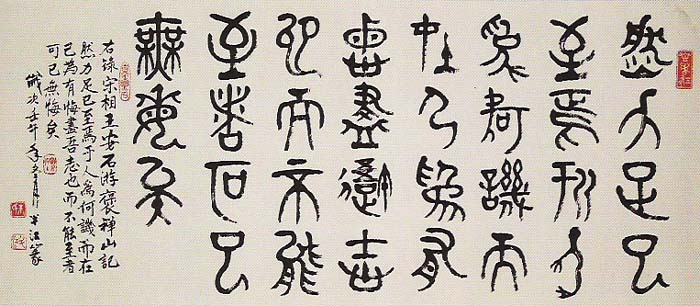 然力足以
至焉於人
為何譏而
在己為有
悔盡吾志
也而不能
至者可以
無悔矣
右錄宋相王安石游褒禪山記
然力足已至焉于人為何譏而在
己為有悔盡吾志也而不能至者
可已無悔矣
歲次壬午年 月半江篆